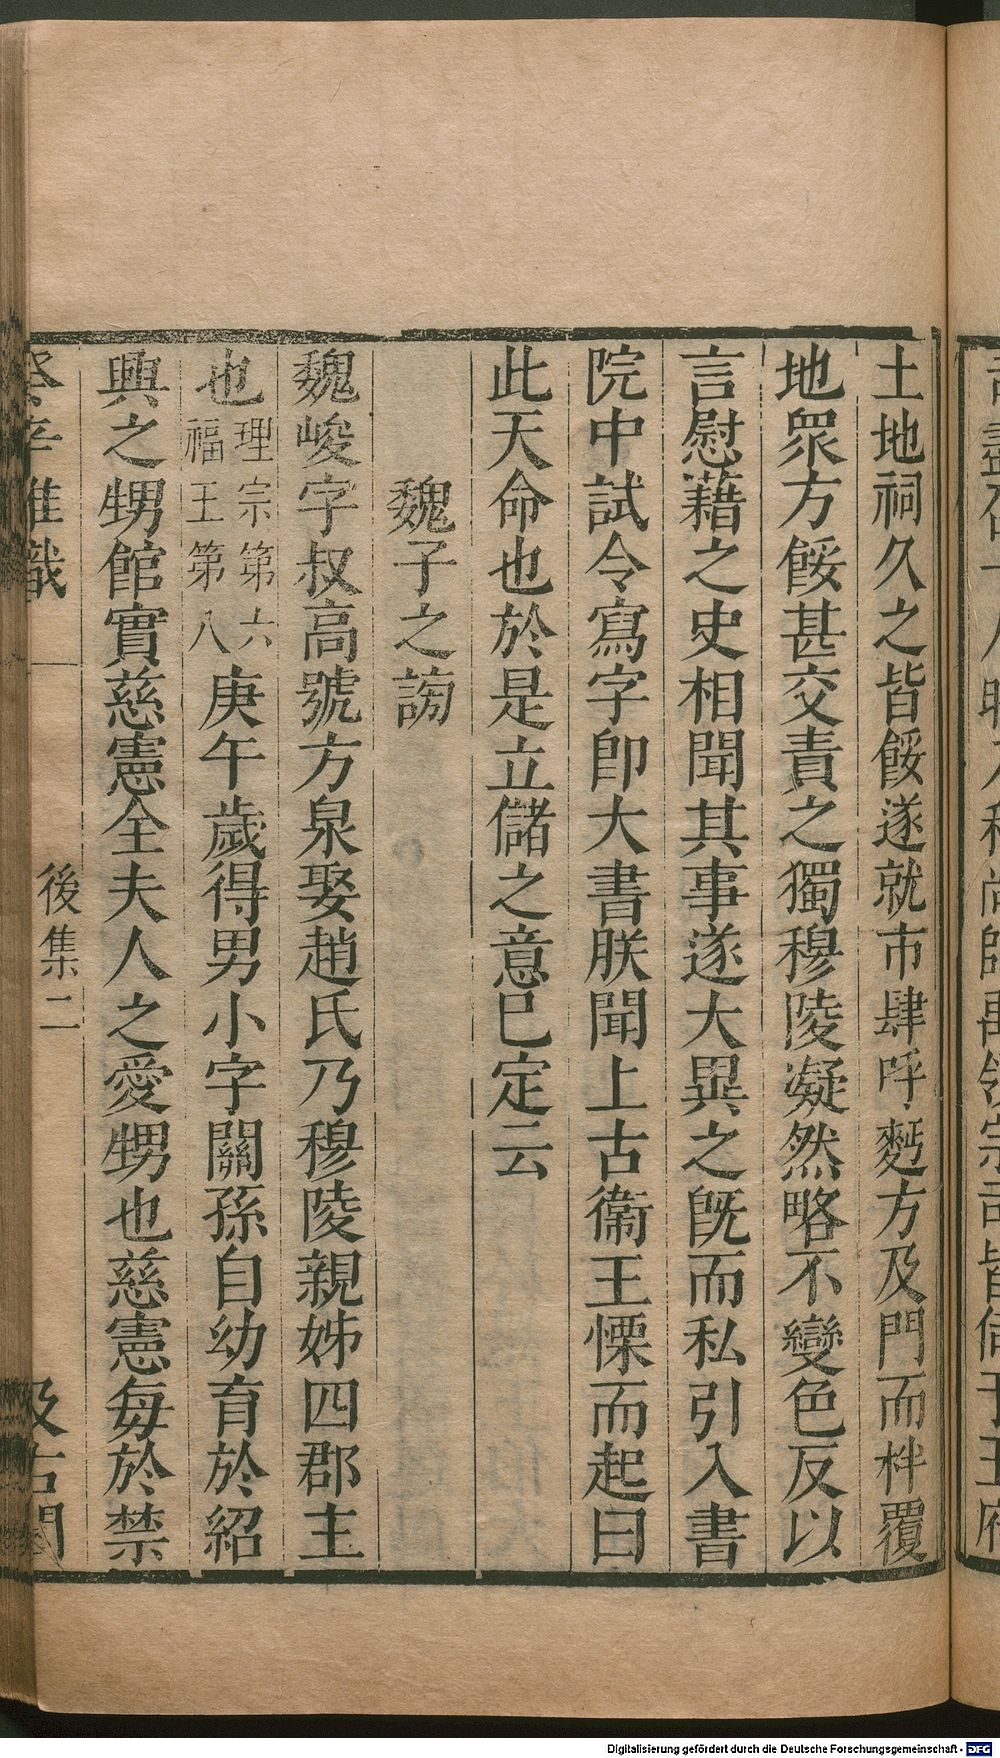 土地祠久之皆餒遂就市肆呼麫方及門而柈覆
地眾方餒甚交責之獨穆陵凝然略不變色反以
言慰藉之史相聞其事遂大異之旣而私引入書
院中試令寫字卽大書朕聞上古衞王慄而起曰
此天命也於是立儲之意已定云
魏子之謗
魏峻字叔高號方泉娶趙氏乃穆陵親姊四郡主
也理宗第六福王第八庚午歲得男小字關孫自幼育於紹
興之甥館實慈憲全夫人之愛甥也慈憲每於禁
癸辛雜識
後集二
汲古閣
Digitalisierung gefördert durch die Deutsche Forschungsgemeinschaft - DFG